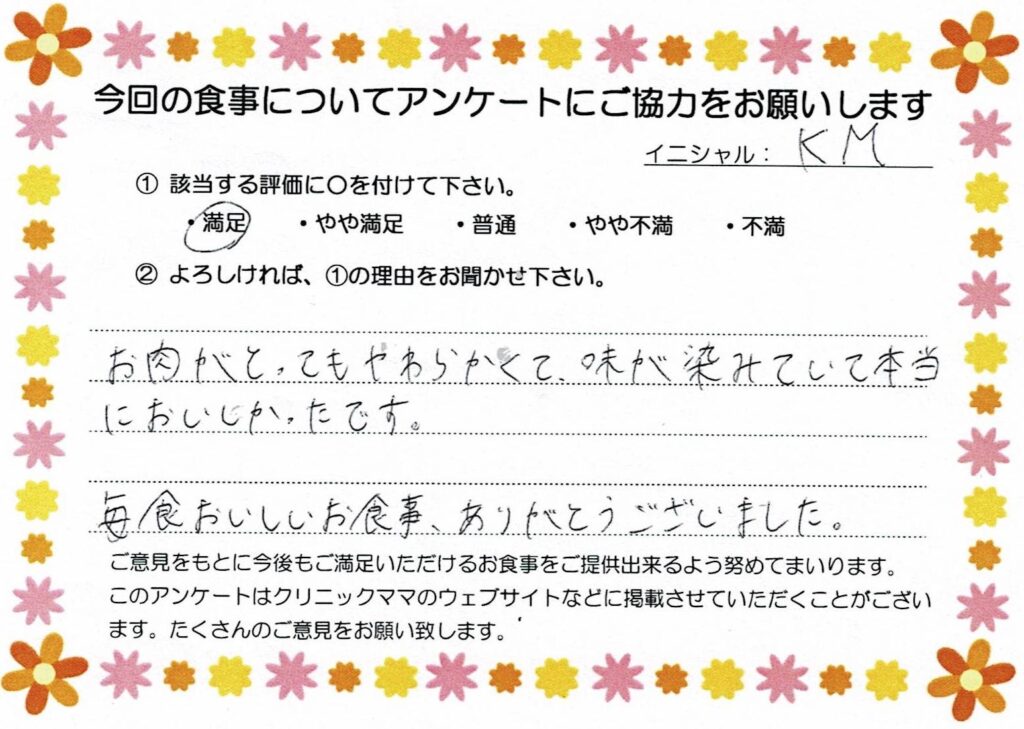 今回の食事についてアンケートにご協力をお願いします
イニシャル： KM
① 該当する評価に○を付けて下さい。
・満足 ・やや満足 ・普通 ・やや不満 ・不満
② よろしければ、①の理由をお聞かせ下さい。
お肉がとってもやわらかくて、味が染みていて本当
においしかったです。
毎食おいしいお食事、ありがとうございました。
ご意見をもとに今後もご満足いただけるお食事をご提供出来るよう努めてまいります。
このアンケートはクリニックママのウェブサイトなどに掲載させていただくことがござい
ます。たくさんのご意見をお願い致します。